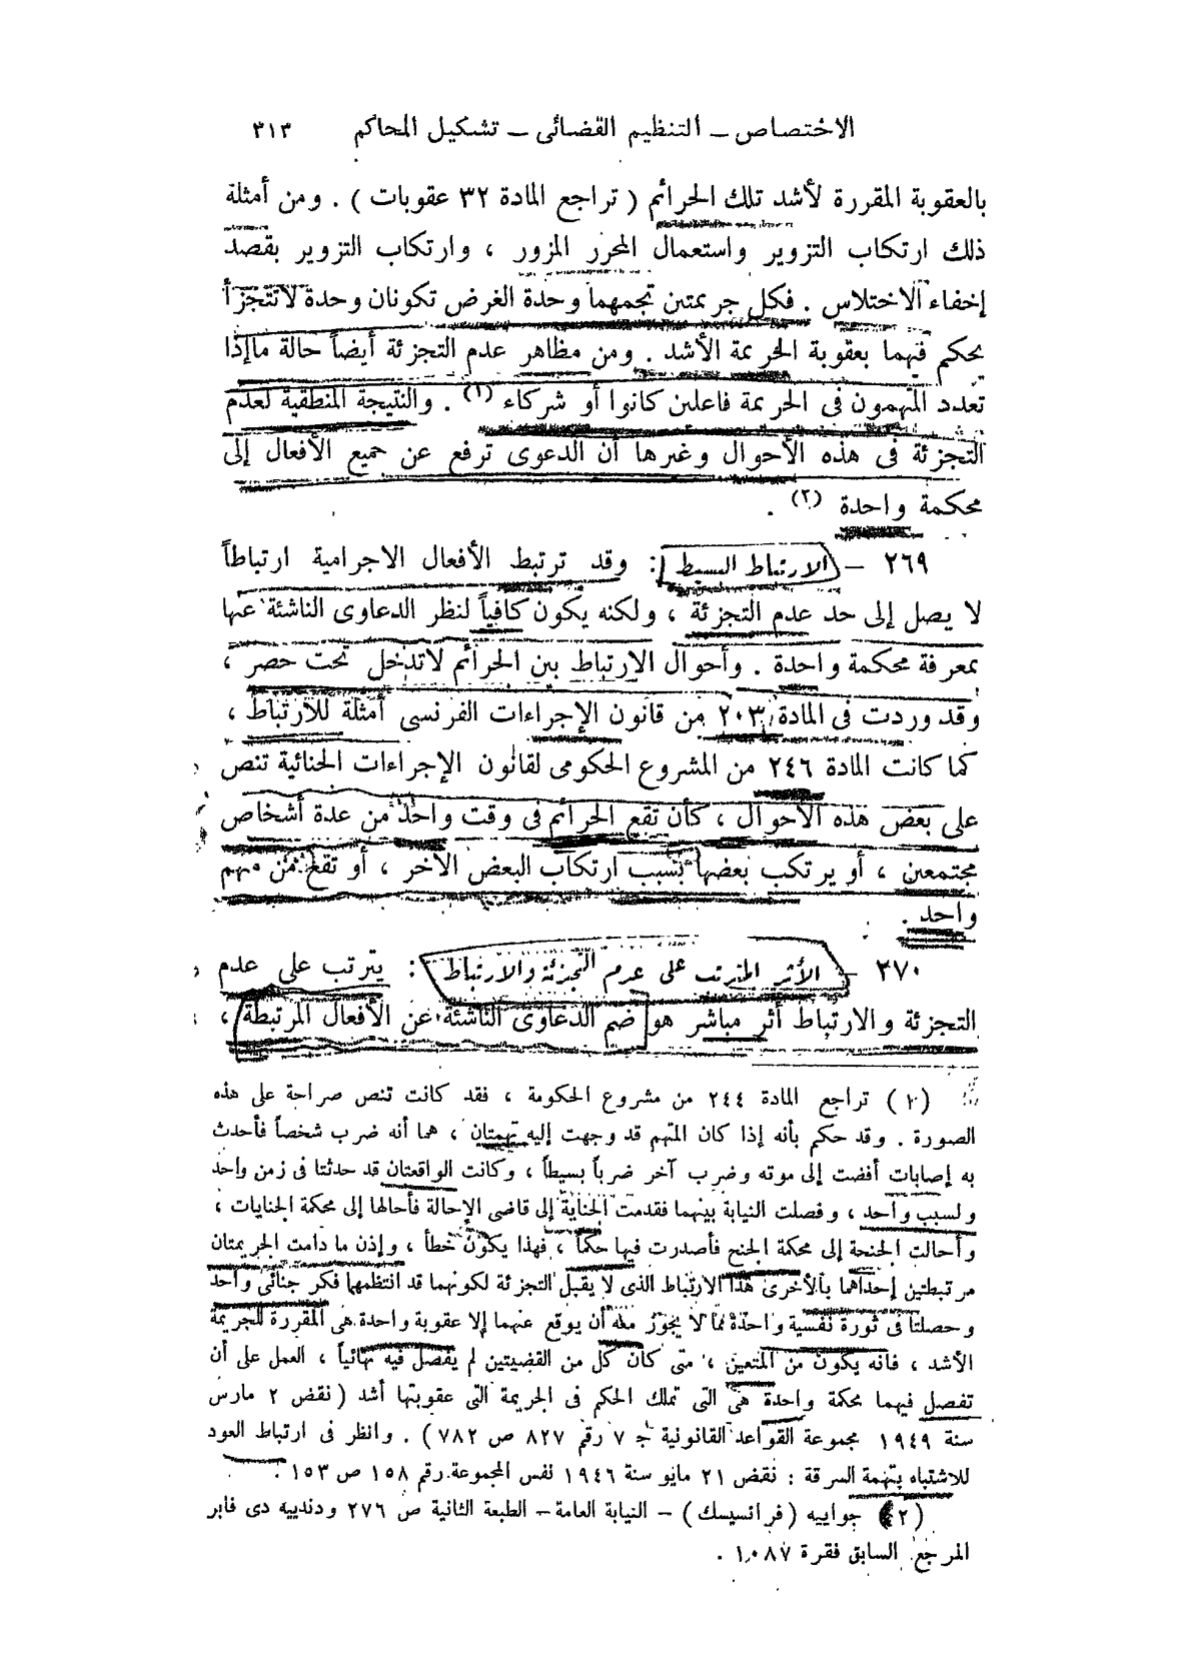 الاختصاص – التنظيم القضائى – تشكيل المحاكم ٣١٣
بالعقوبة المقررة لأشد تلك الجرائم ( تراجع المادة ٣٢ عقوبات ) . ومن أمثلة
ذلك ارتكاب التزوير واستعمال المحرر المزور ، وارتكاب التزوير بقصد
إخفاء الاختلاس . فكل جريمتين تجمهما وحدة الغرض تكونان وحدة لاتتجزأ
يحكم فيهما بعقوبة الجريمة الأشد . ومن مظاهر عدم التجزئة أيضاً حالة ماإذا
تعدد المتهمون فى الجريمة فاعلين كانوا أو شركاء (١) . والنتيجة المنطقية لعدم
التجزئة فى هذه الأحوال وغيرها أن الدعوى ترفع عن جميع الأفعال إلى
محكمة واحدة (٢) .
٢٦٩ – الارتباط البسيط : وقد ترتبط الأفعال الاجرامية ارتباطاً
لا يصل إلى حد عدم التجزئة ، ولكنه يكون كافياً لنظر الدعاوى الناشئة عنها
بمعرفة محكمة واحدة . وأحوال الارتباط بين الجرائم لاتدخل تحت حصر ،
وقد وردت فى المادة ٢٠٣ من قانون الإجراءات الفرنسى أمثلة للارتباط ،
كما كانت المادة ٢٤٦ من المشروع الحكومى لقانون الإجراءات الجنائية تنص
على بعض هذه الأحوال ، كأن تقع الجرائم فى وقت واحد من عدة أشخاص
مجتمعين ، أو يرتكب بعضها بسبب ارتكاب البعض الآخر ، أو تقع من متهم
واحد .
٢٧٠ – الأثر المترتب على عدم التجزئة والارتباط : يترتب على عدم
التجزئة والارتباط أثر مباشر هو ضم الدعاوى الناشئة عن الأفعال المرتبطة ،
(١) تراجع المادة ٢٤٤ من مشروع الحكومة ، فقد كانت تنص صراحة على هذه
الصورة . وقد حكم بأنه إذا كان المتهم قد وجهت إليه تهمتان ، هما أنه ضرب شخصاً فأحدث
به إصابات أفضت إلى موته وضرب آخر ضرباً بسيطاً ، وكانت الواقعتان قد حدثتا فى زمن واحد
ولسبب واحد ، وفصلت النيابة بينهما فقدمت الجناية إلى قاضى الإحالة فأحالها إلى محكمة الجنايات ،
وأحالت الجنحة إلى محكمة الجنح فأصدرت فيها حكماً ، فهذا يكون خطأ ، وإذن ما دامت الجريمتان
مرتبطتين إحداهما بالأخرى هذا الارتباط الذى لا يقبل التجزئة لكونهما قد انتظمهما فكر جنائى واحد
وحصلتا فى ثورة نفسية واحدة مما لا يجوز معه أن يوقع عنهما إلا عقوبة واحدة هى المقررة للجريمة
الأشد ، فانه يكون من المتعين ، متى كان كل من القضيتين لم يفصل فيه نهائياً ، العمل على أن
تفصل فيهما محكمة واحدة هى التى تملك الحكم فى الجريمة التى عقوبتها أشد ( نقض ٢ مارس
سنة ١٩٤٩ مجموعة القواعد القانونية ج ٧ رقم ٨٢٧ ص ٧٨٢ ) . وانظر فى ارتباط العود
للاشتباه بتهمة السرقة : نقض ٢١ مايو سنة ١٩٤٦ نفس المجموعة رقم ١٥٨ ص ١٥٣ .
(٢) جواييه ( فرانسيسك ) – النيابة العامة – الطبعة الثانية ص ٢٧٦ ودندييه دى فابر
المرجع السابق فقرة ١٠٨٧ .